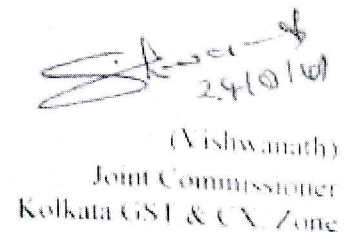 (Vishwanath)
Joint Commissioner
Kolkata GST & CX Zone